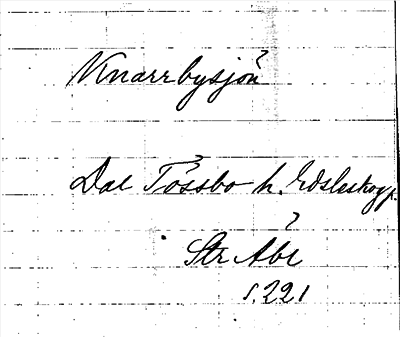 Knarrbysjön
Dal Tössbo h. Edsleskog p.
Str Abr
s. 221